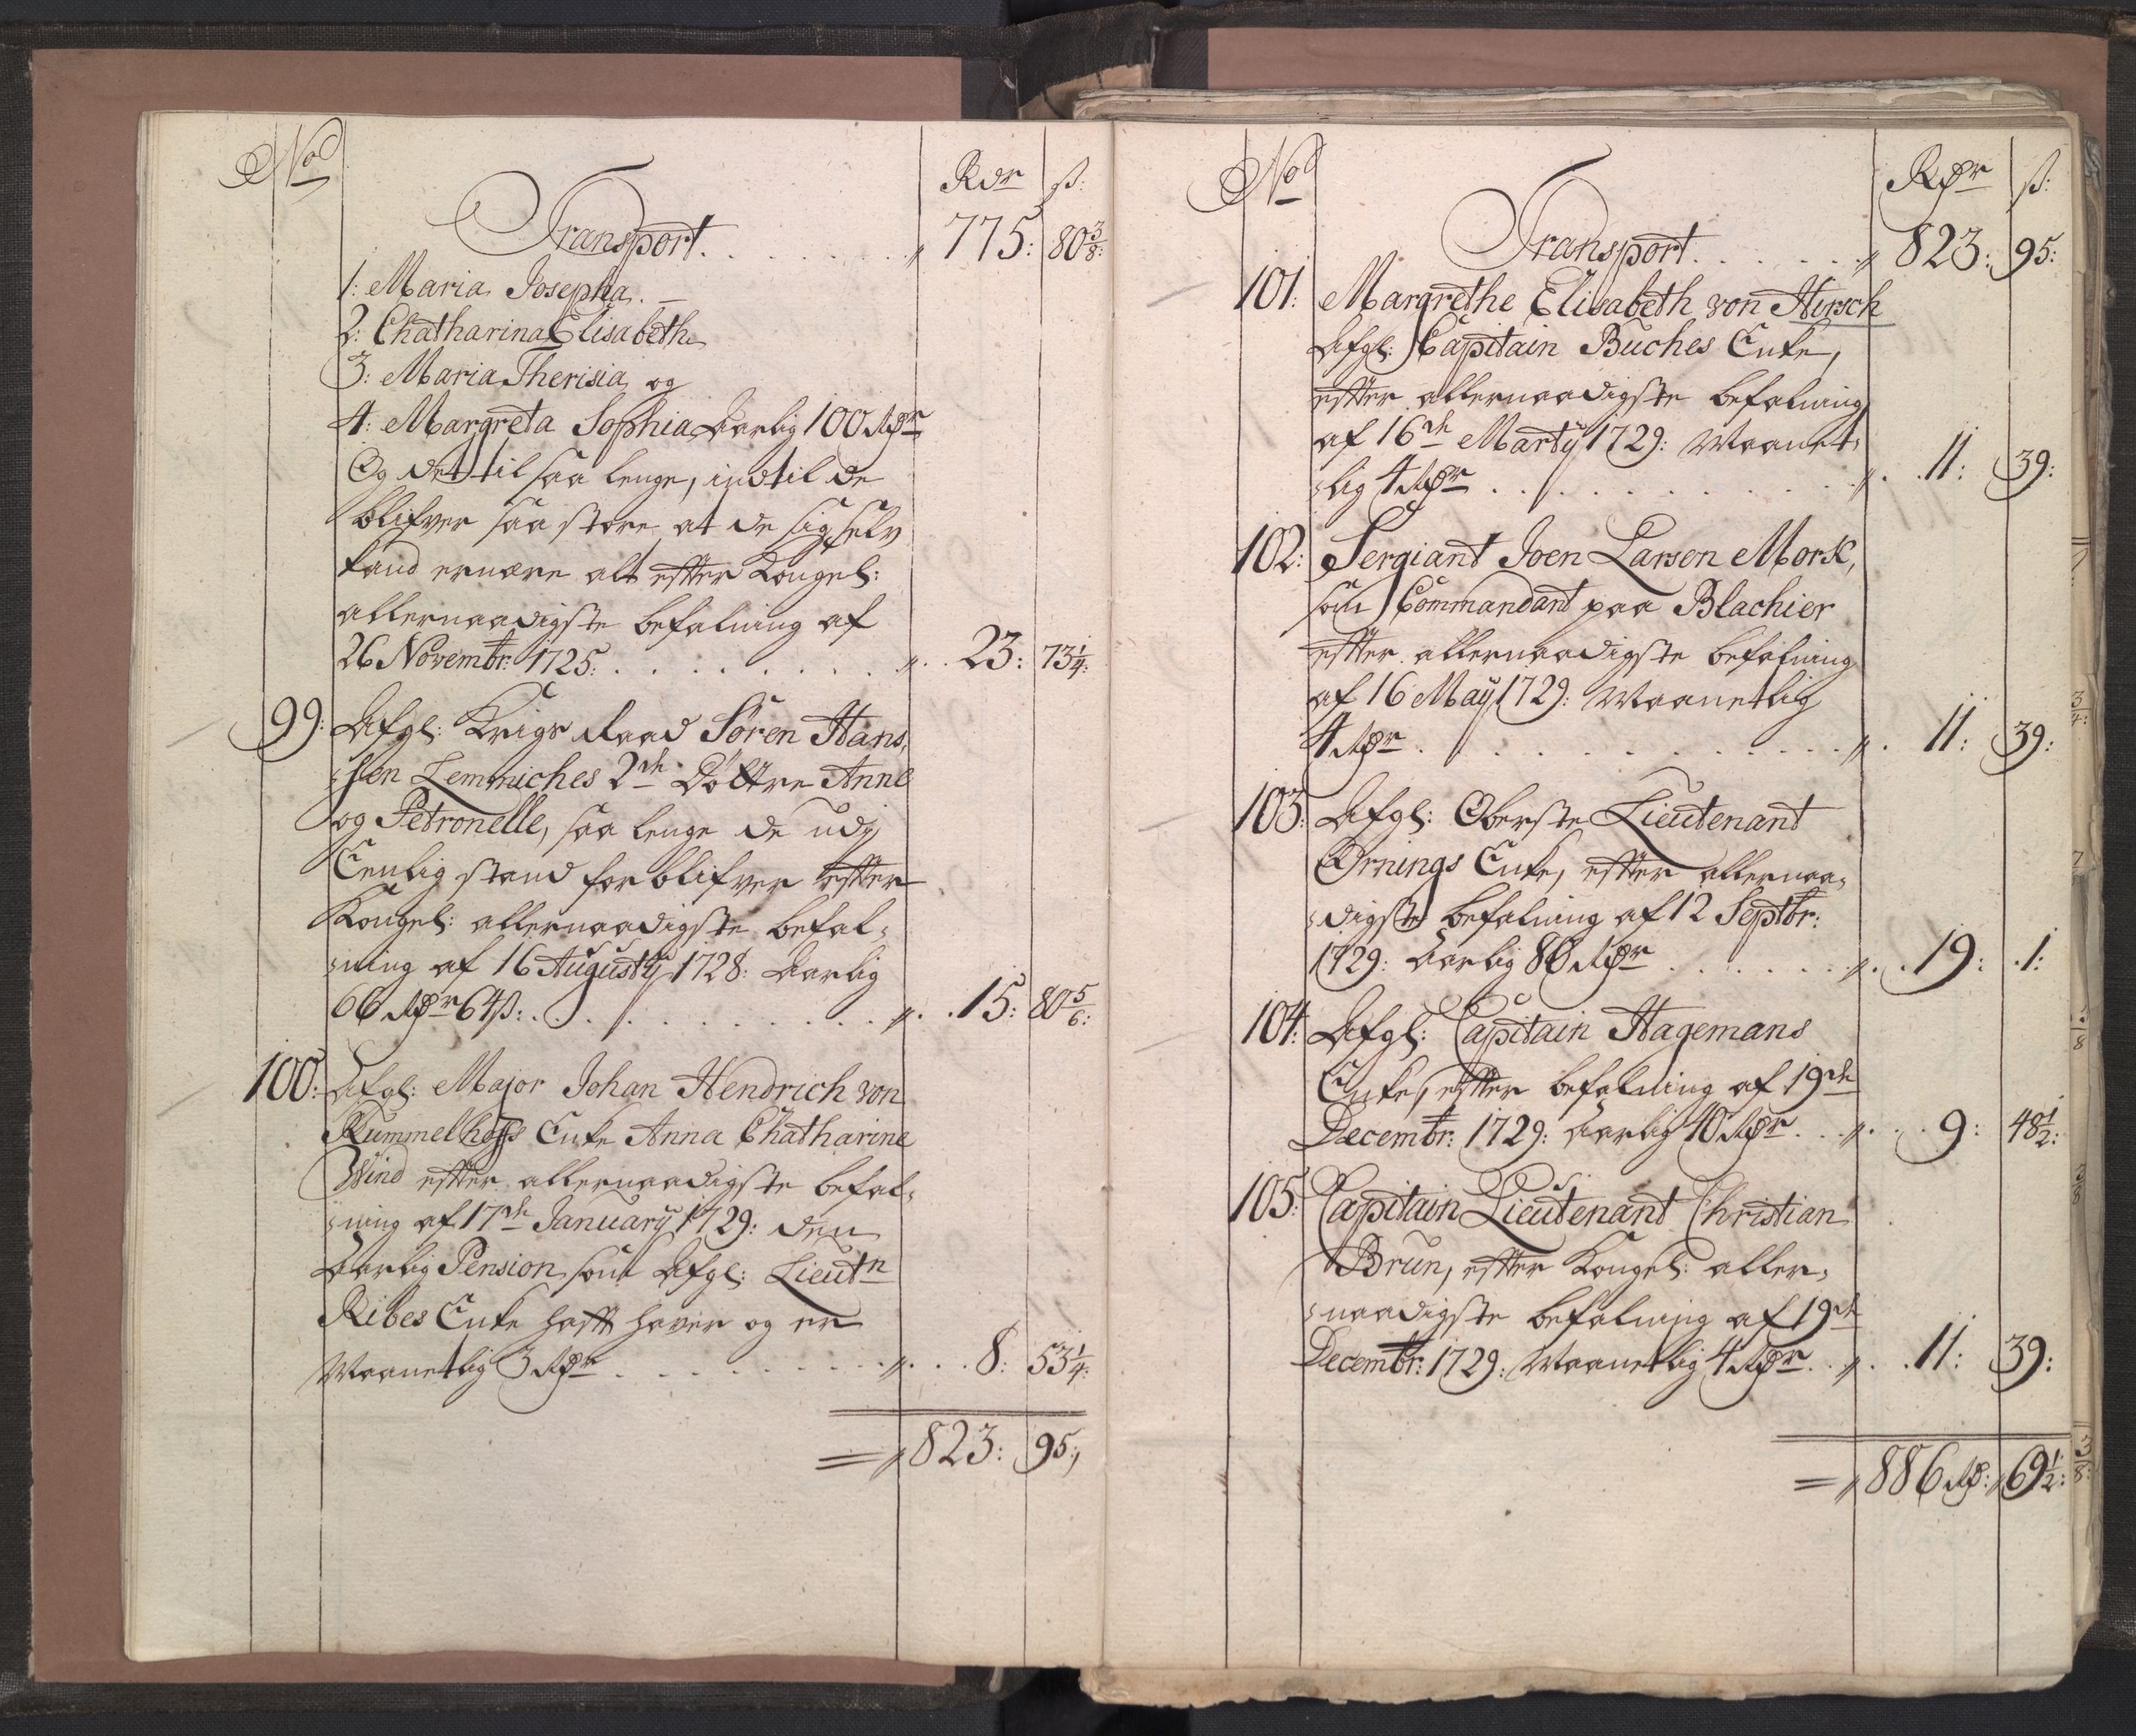 No
Rdr ß:
Transport. . . . . . . . 775: 80 3/8:
1: Maria Josepha. —
2: Chatharina Elisabetha
3: Maria Therisia, og
4: Margreta Sophia, Aarlig 100 Rdr
Og det til saa lenge, indtil de
blifver saa store at de sig selv
kand ernære alt effter Kongel:
allernaadigste befalning af
26 Novembr: 1725: . . . . . . . . 23: 73 1/4:
99: Afgl: Krigs Raad Søren Hans-
-sen Lemmiches 2de Døttre Anne
og Petronelle, saa lenge de udj
Eenlig stand forblifver effter
Kongel: allernaadigste befal-
-ning af 16 Augustij 1728: Aarlig
66 Rdr 64 ß: . . . . . . . . . . 15: 80 5/6:
100: Afgl: Major Johan Hendrich von
Rummelhoffs Enke Anna Chatharine
Wind effter allernaadigste befal-
-ning af 17de Januarij 1729: den
Aarlig Pension som Afgl: Lieutn
Ribes Enke hafft haver og er
Maanetlig 3 Rdr . . . . . . . . 8: 53 1/4:
= 823: 95:
No
Rdr ß:
Transport. . . . . . . 823: 95:
101: Margrethe Elisabeth von Hirsch
Afgl: Capitain Buches Enke,
effter allernaadigste befalning
af 16de Martij 1729: Maanet-
-lig 4 Rdr . . . . . . . . . . 11: 39:
102: Sergiant Joen Larsen Morsk,
som Commandant paa Blachier
effter allernaadigste befalning
af 16 Maij 1729: Maanetlig
4 Rdr . . . . . . . . . . . . 11: 39:
103: Afgl: Oberste Lieutenant
Ørnings Enke, effter allernaa-
-digste befalning af 12 Septbr:
1729: Aarlig 80 Rdr . . . . . . . 19: 1:
104: Afgl: Capitain Hagemans
Enke, effter befalning af 19de
Decembr: 1729: Aarlig 40 Rdr . . . 9: 48 1/2:
105: Capitain Lieutenant Christian
Brun, effter Kongel: aller-
-naadigste befalning af 19de
Decembr: 1729: Maanetlig 4 Rdr . . 11: 39:
= 886 Rd: 69 1/2: